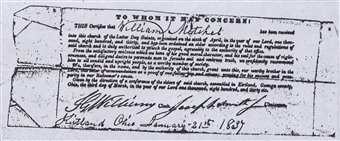 TO WHOM IT MAY CONCERN:
THIS Certifies that William Mitchel has been received
into this church of the Latter Day Saints, organized on the sixth of April, in the year of our Lord, one thousand, eight hundred, and thirty, and has been ordained an elder according to the rules and regulations of
said church and is duly authorized to preach the gospel, agreeably to the authority of that office.
From the satisfactory evidence which we have of his good moral character, and his zeal for the cause of righteousness, and diligent desire to persuade men to forsake evil and embrace truth, we confidently recommend
him to all candid and upright people, as a worthy member of society.
We, therefore, in the name, and by the authority of this church, grant unto this, our worthy brother in the
Lord, this letter of commendation as a proof of our fellowship and esteem: praying for his success and prosperity in our Redeemer's cause.
Given by the direction of a conference of the elders of said church, assembled in Kirtland, Geauga county,
Ohio, the third day of March, in the year of our Lord, one thousand, eight hundred, and thirty six.
F G Williams Clerk. Joseph Smith Chairman.
Kirtland Ohio January 21st 1837